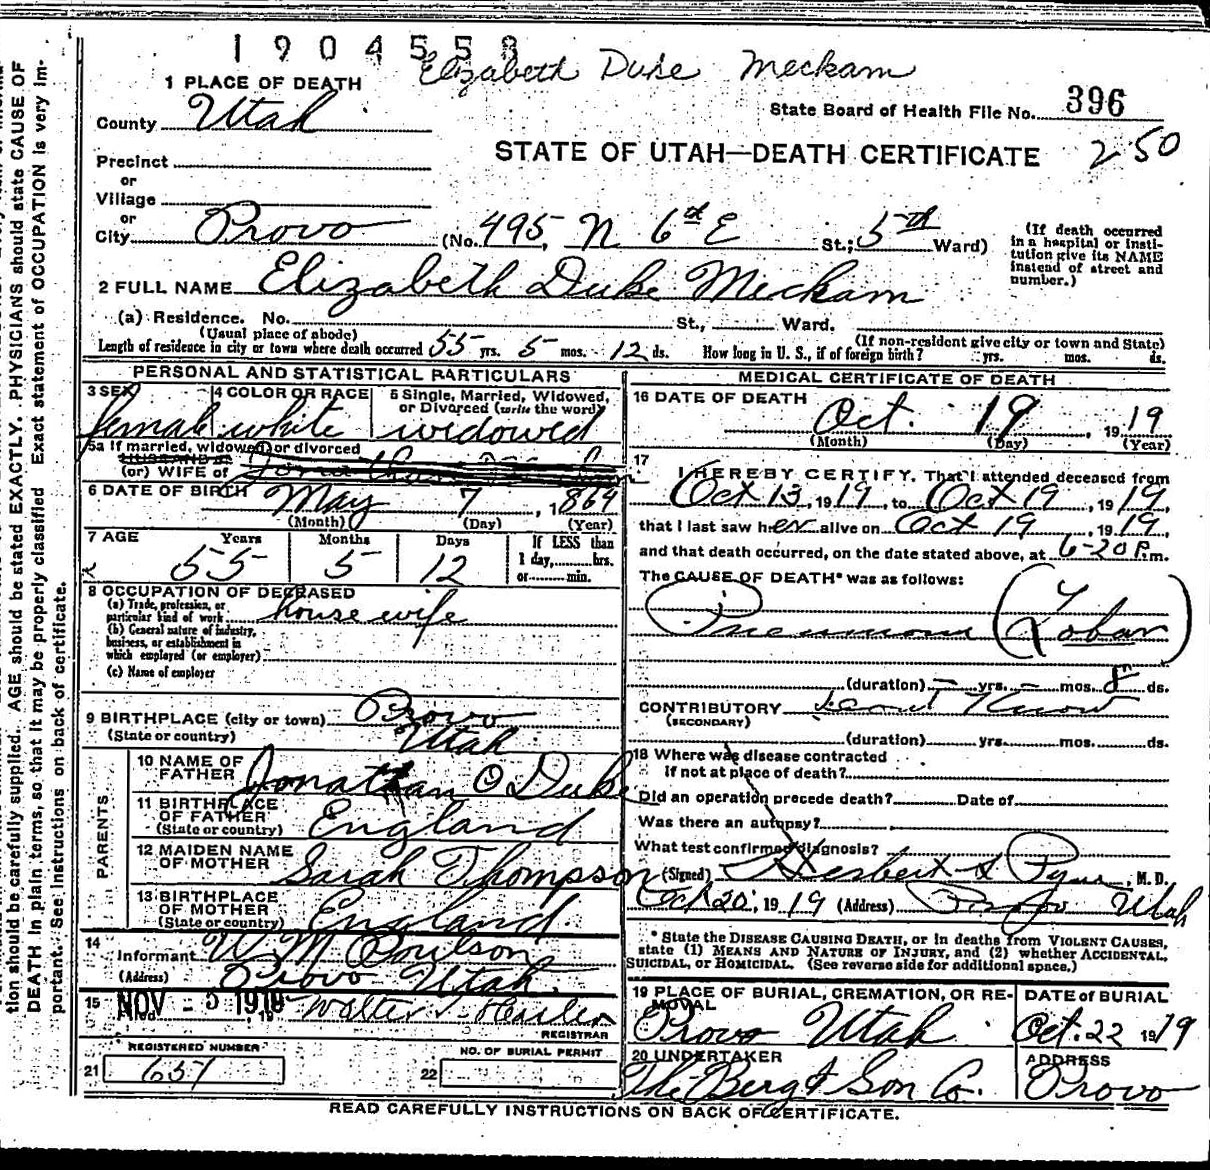 1904558
Elizabeth Duke Meckam
1 PLACE OF DEATH
State Board of Health File No. 396
County Utah
STATE OF UTAH—DEATH CERTIFICATE 250
Precinct
or
Village
or
City Provo (No. 495, N 6th E St.; 5th Ward)
(If death occurred in a hospital or insti-
tution give its NAME
instead of street and
number.)
2 FULL NAME Elizabeth Duke Meckam
(a) Residence. No. St., Ward.
(Usual place of abode) (If non-resident give city or town and State)
Length of residence in city or town where death occurred 55 yrs. 5 mos. 12 ds. How long in U. S., if of foreign birth? yrs. mos. ds.
PERSONAL AND STATISTICAL PARTICULARS
3 SEX 4 COLOR OR RACE 5 Single, Married, Widowed,
or Divorced (write the word)
female white widowed
5a If married, widowed, or divorced
HUSBAND of
(or) WIFE of
6 DATE OF BIRTH May 7, 1864
(Month) (Day) (Year)
7 AGE Years Months Days If LESS than
1 day, hrs.
or min.
55 5 12
8 OCCUPATION OF DECEASED
(a) Trade, profession, or
particular kind of work house wife
(b) General nature of industry,
business, or establishment in
which employed (or employer)
(c) Name of employer
9 BIRTHPLACE (city or town) Provo
(State or country) Utah
PARENTS
10 NAME OF
FATHER Jonathan O Duke
11 BIRTHPLACE
OF FATHER
(State or country) England
12 MAIDEN NAME
OF MOTHER Sarah Thompson
13 BIRTHPLACE
OF MOTHER
(State or country) England.
14
Informant W. M Poulson
(Address) Provo Utah.
15 NOV - 5 1919 Walter
REGISTRAR
REGISTERED NUMBER NO. OF BURIAL PERMIT
21 637 22
MEDICAL CERTIFICATE OF DEATH
16 DATE OF DEATH
Oct. 19, 1919
(Month) (Day) (Year)
17 I HEREBY CERTIFY, That I attended deceased from
Oct 13, 1919, to Oct 19, 1919,
that I last saw her alive on Oct 19, 1919,
and that death occurred, on the date stated above, at 6-20 P.m.
The CAUSE OF DEATH* was as follows:
Pneumonia (Lobar)
(duration) — yrs. — mos. 8 ds.
CONTRIBUTORY dont Know
(SECONDARY)
(duration) yrs. mos. ds.
18 Where was disease contracted
if not at place of death?
Did an operation precede death? Date of
Was there an autopsy?
What test confirmed diagnosis?
(Signed) Herbert S Pyne, M. D.
Oct 20, 1919 (Address) Provo Utah
* State the DISEASE CAUSING DEATH, or in deaths from VIOLENT CAUSES,
state (1) MEANS AND NATURE OF INJURY, and (2) whether ACCIDENTAL,
SUICIDAL, or HOMICIDAL. (See reverse side for additional space.)
19 PLACE OF BURIAL, CREMATION, OR RE-
MOVAL DATE of BURIAL
Provo Utah Oct. 22 1919
20 UNDERTAKER ADDRESS
The Berg & Son Co. Provo
READ CAREFULLY INSTRUCTIONS ON BACK OF CERTIFICATE.
tion should be carefully supplied. AGE should be stated EXACTLY. PHYSICIANS should state CAUSE OF
DEATH in plain terms, so that it may be properly classified. Exact statement of OCCUPATION is very im-
portant. See instructions on back of certificate.